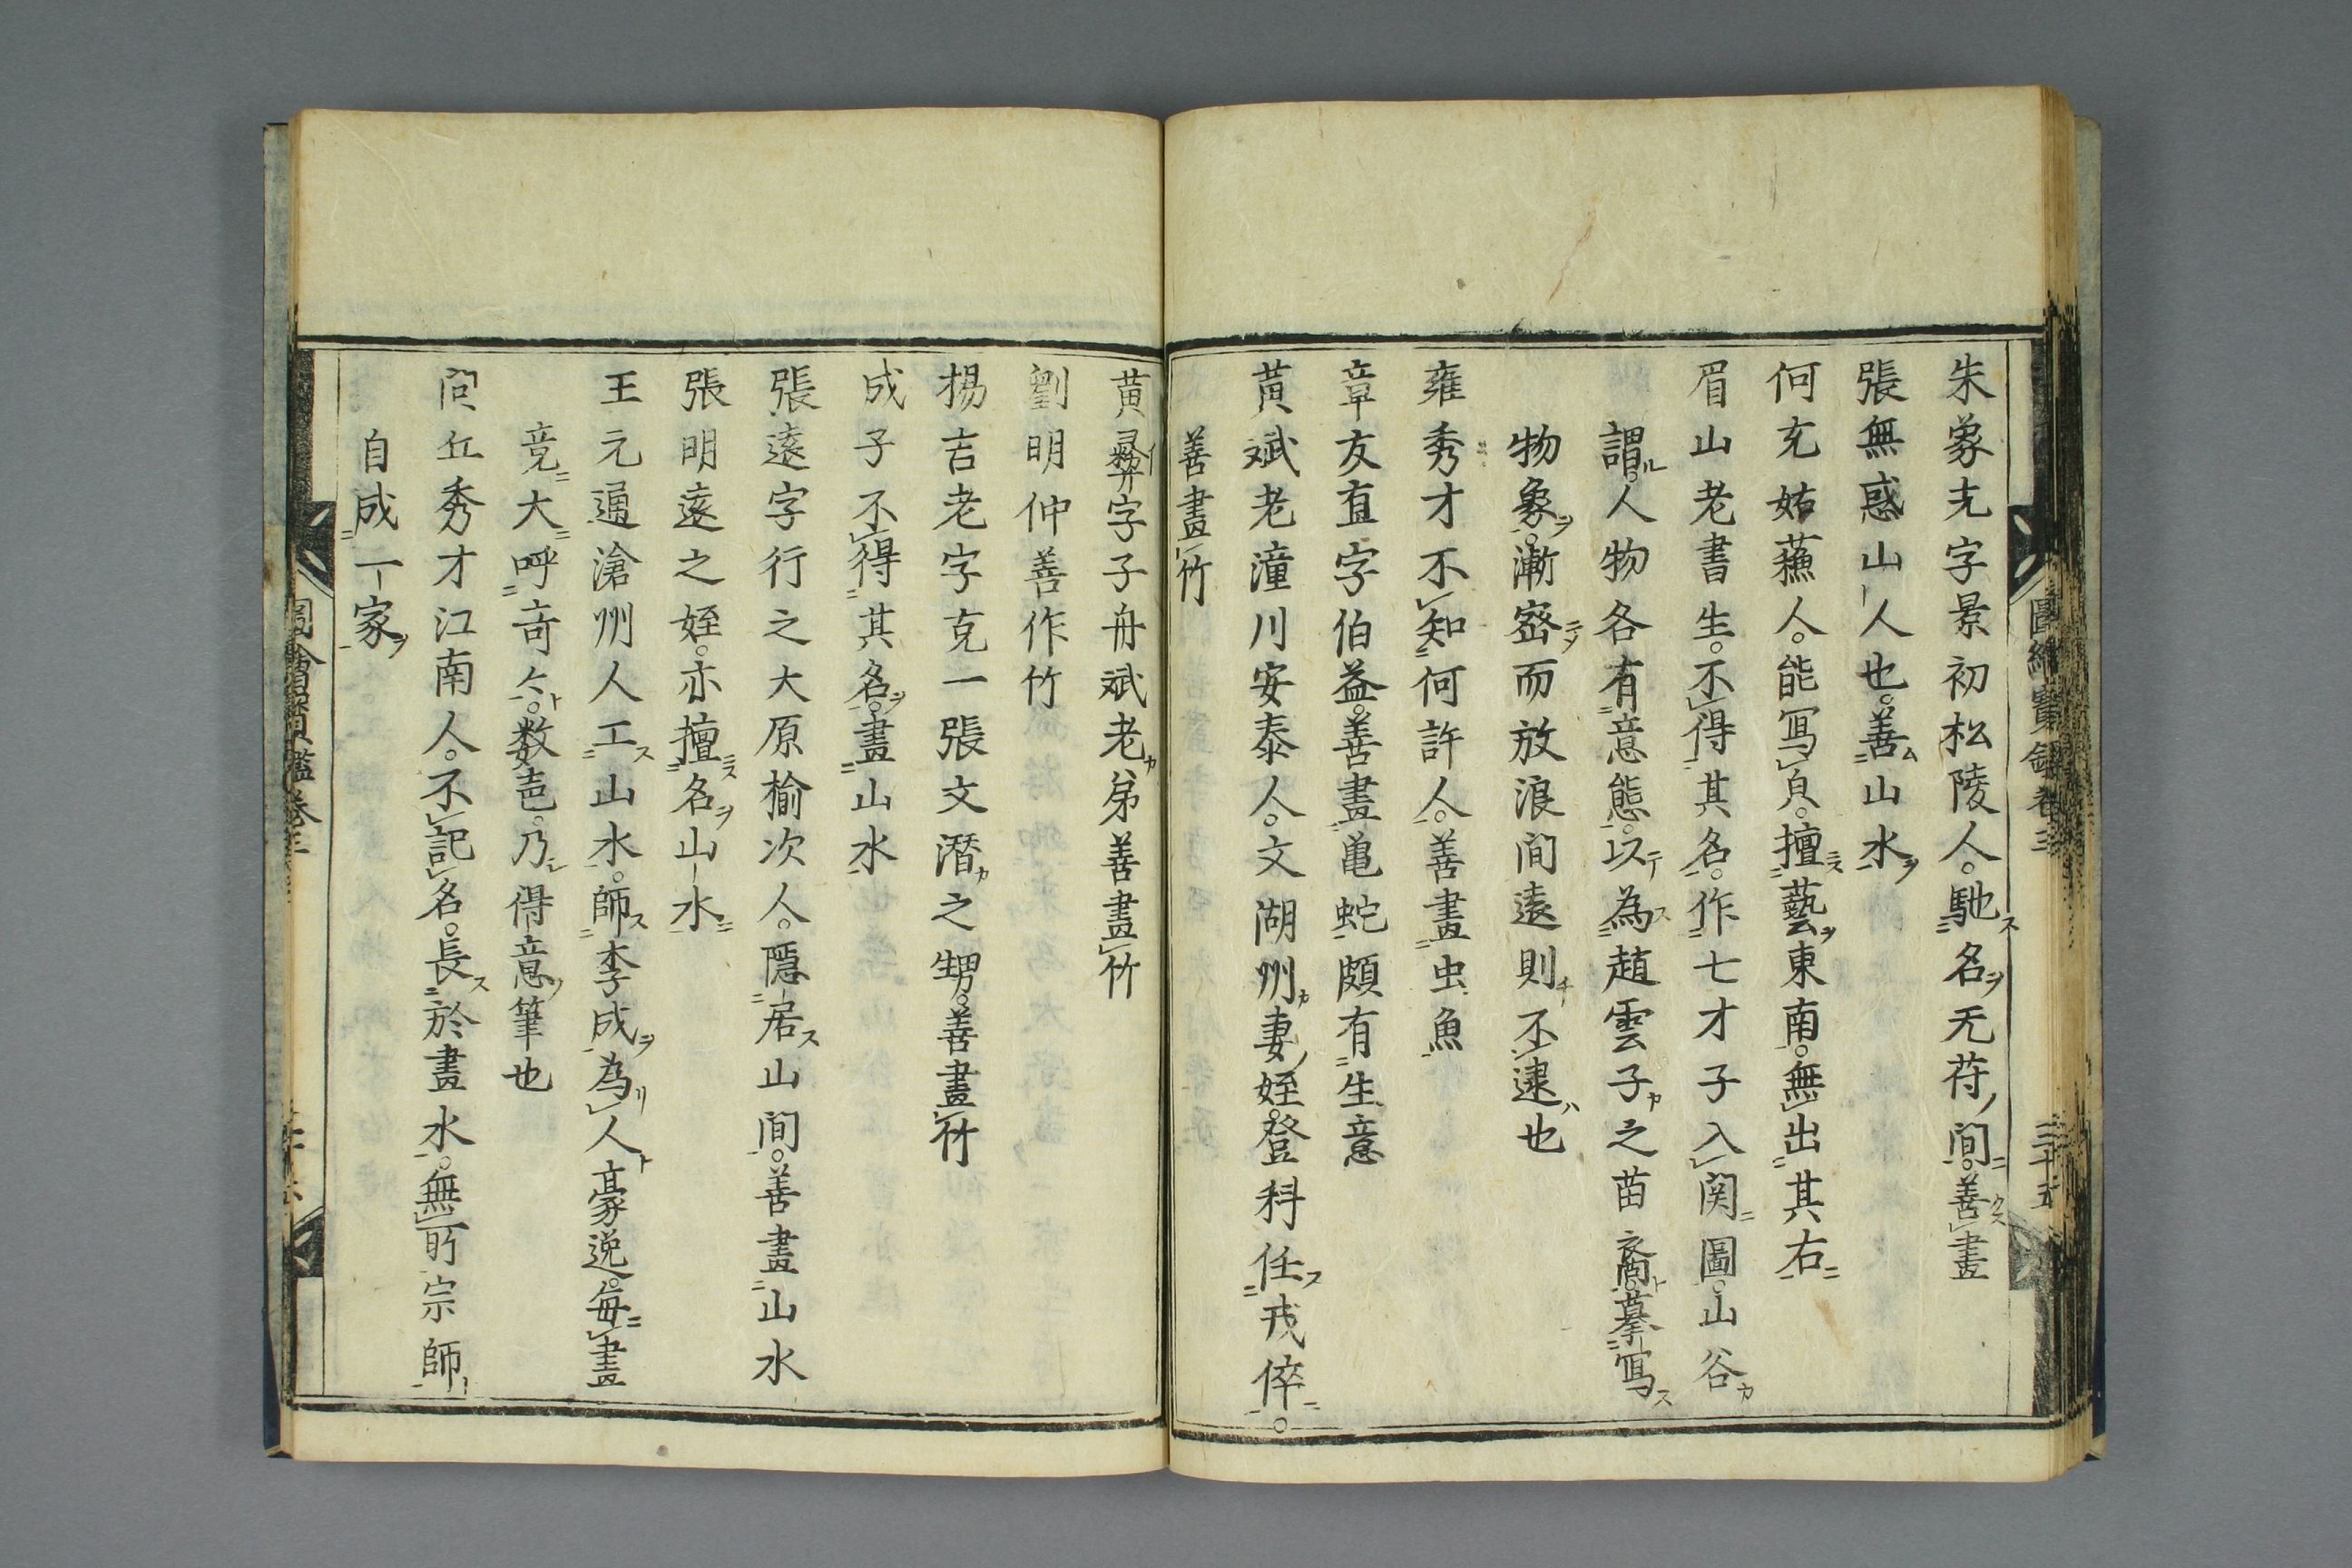 朱象先字景初松陵人。馳名元符間。善畫
張無惑山人也。善山水
何充姑蘓人。能寫皃。擅藝東南。無出其右
眉山老書生。不得其名。作七才子入関圖。山谷
謂。人物各有意態。以為趙雲子之苗裔。摹寫
物象。漸宻而放浪間遠則不逮也
雍秀才不知何許人。善畫虫魚
章友直字伯益。善畫亀蛇頗有生意
黄斌老潼川安泰人。文湖州妻姪。登科任戎倅。
善畫竹
黄彛字子舟斌老弟善畫竹
劉明仲善作竹
楊吉老字克一張文潜之甥。善畫竹
成子不得其名。畫山水
張遠字行之大原榆次人。隱居山間。善畫山水
張明遠之姪。亦擅名山水
王元通滄州人工山水。師李成為人豪逸。每畫
竟大呼奇々。数声。乃得意筆也
閭丘秀才江南人。不記名。長於畫水。無所宗師
自成一家
圖繪寳鑑卷三
三十五
圖繪寳鑑卷三